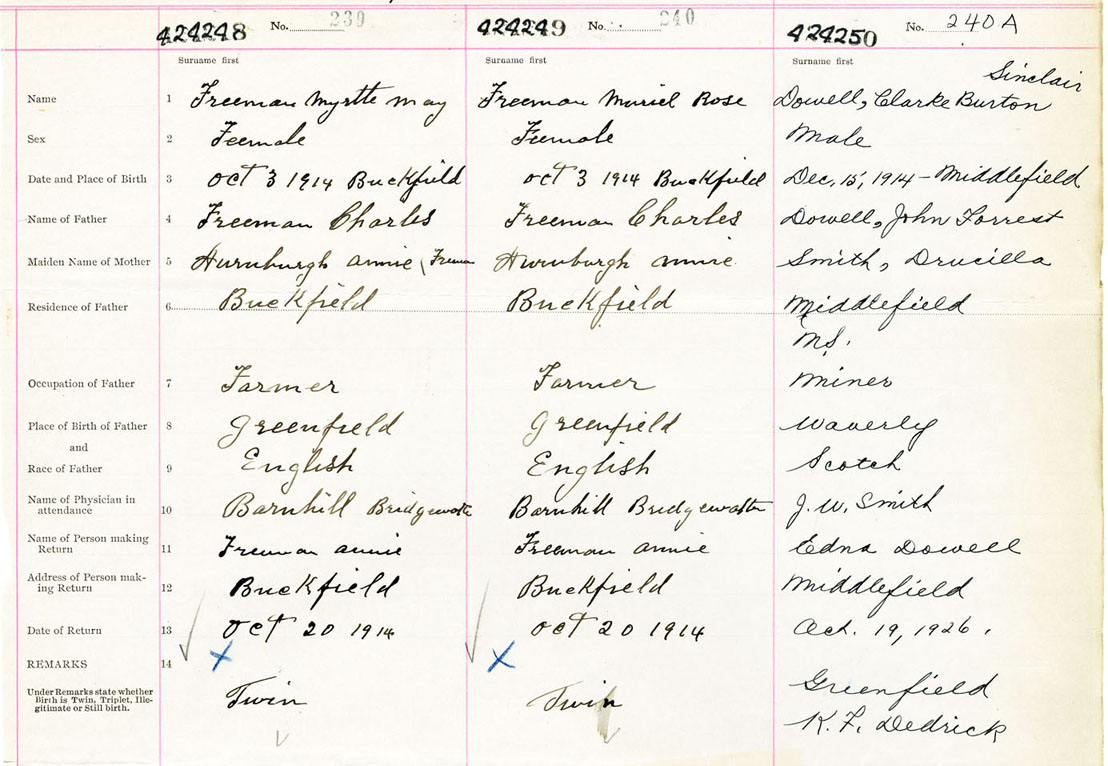 424248 No. 239 424249 No. 240 424250 No. 240A
Surname first Surname first Surname first
Sinclair
Name 1 Freeman Myrtle May Freeman Muriel Rose Dowell, Clarke Burton
Sex 2 Feemale Feemale Male
Date and Place of Birth 3 Oct 3 1914 Buckfield Oct 3 1914 Buckfield Dec. 15, 1914 - Middlefield
Name of Father 4 Freeman Charles Freeman Charles Dowell, John Forrest
Maiden Name of Mother 5 Hurnburgh Annie Hurnburgh Annie Smith, Drucilla
Residence of Father 6 Buckfield Buckfield Middlefield
N.S.
Occupation of Father 7 Farmer Farmer Miner
Place of Birth of Father 8 Greenfield Greenfield Waverly
and
Race of Father 9 English English Scotch
Name of Physician in
attendance 10 Barnhill Bridgewater Barnhill Bridgewater J. W. Smith
Name of Person making
Return 11 Freeman Annie Freeman Annie Edna Dowell
Address of Person mak-
ing Return 12 Buckfield Buckfield Middlefield
Date of Return 13 Oct 20 1914 Oct 20 1914 Oct. 19, 1926.
REMARKS 14 X X
Under Remarks state whether
Birth is Twin, Triplet, Ille-
gitimate or Still birth. Twin Twin Greenfield
K. F. Dedrick